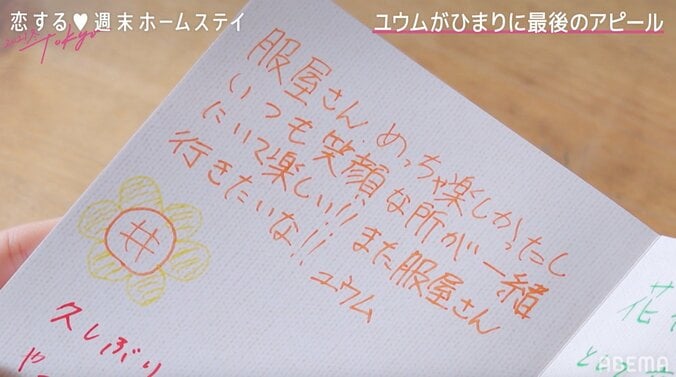 恋する♥週末ホームステイ
2021春 Tokyo
ユウムがひまりに最後のアピール
服屋さんめっちゃ楽しかったし
いつも笑顔な所が一緒
にいて楽しい!!また服屋さん
行きたいな!!
ユウム
久しぶり
や
花
と
ABEMA